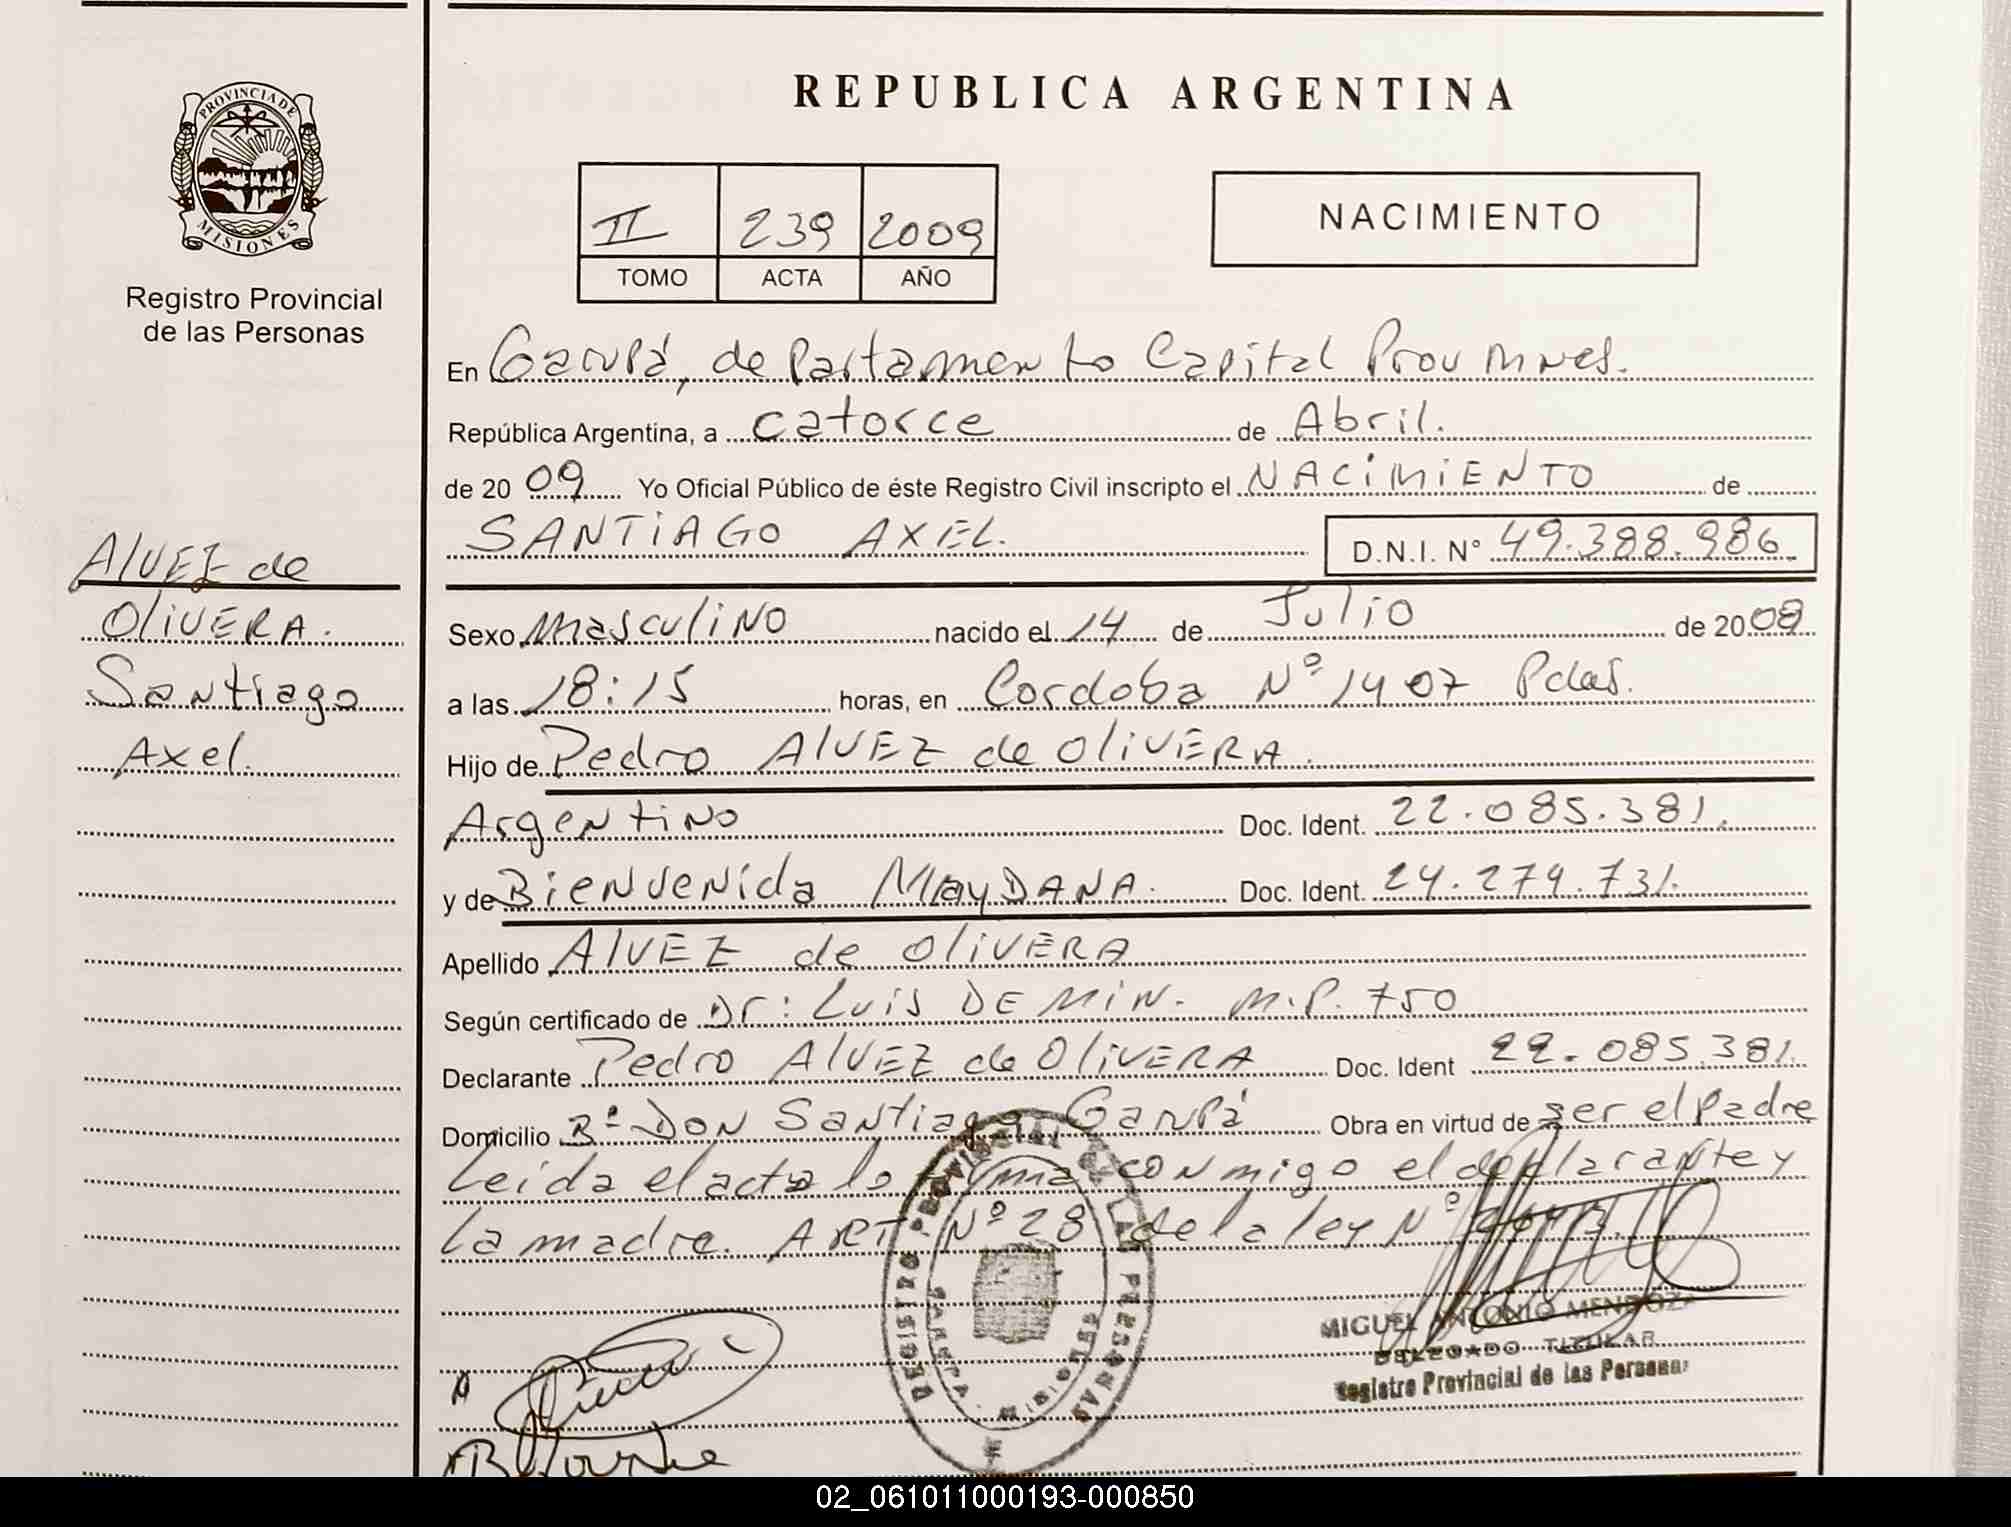 REPUBLICA ARGENTINA
PROVINCIA DE
MISIONES
Registro Provincial
de las Personas
II 239 2009
TOMO ACTA AÑO
NACIMIENTO
En Garupá, departamento Capital Prov Mnes.
República Argentina, a catorce de Abril.
de 2009 Yo Oficial Público de éste Registro Civil inscripto el NACIMIENTO de
SANTIAGO AXEL. D.N.I. N° 49.388.986
Alvez de
Olivera.
Santiago
Axel.
Sexo masculino nacido el 14 de Julio de 2008
a las 18:15 horas, en Cordoba N° 1407 Pdas.
Hijo de Pedro Alvez de Olivera.
Argentino Doc. Ident. 22.085.381.
y de Bienvenida Maydana. Doc. Ident. 24.274.731.
Apellido Alvez de Olivera
Según certificado de Dr: Luis De Min. M.P. 750
Declarante Pedro Alvez de Olivera Doc. Ident 22.085.381.
Domicilio B° Don Santiago Garupá Obra en virtud de ser el padre
Leída el acta lo firma conmigo el declarante y
la madre. ART N° 28 de la ley N°
REGISTRO PROVINCIAL DE LAS PERSONAS
MIGUEL ANTONIO MENDOZA
DELEGADO TITULAR
Registro Provincial de las Personas
02_061011000193-000850